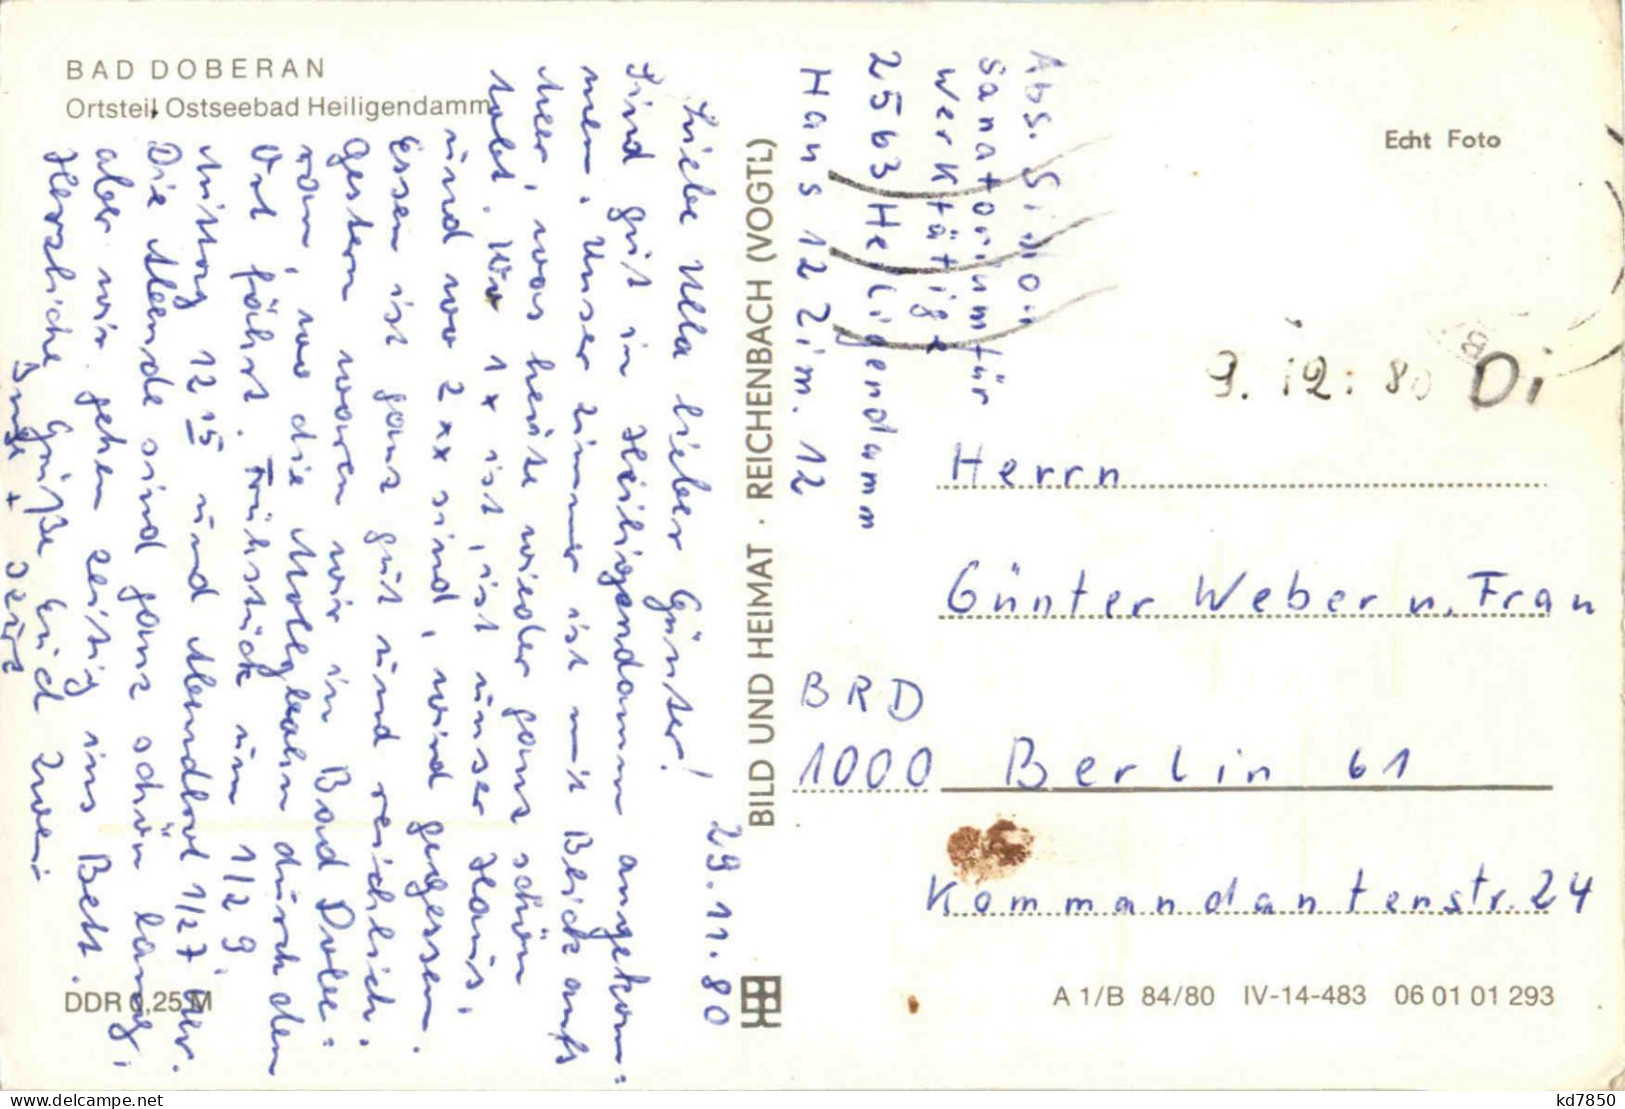 BAD DOBERAN
Ortsteil Ostseebad Heiligendamm
29.11.80
Liebe Ulla lieber Günter!
Sind gut in Heiligendamm angekom=
men. Unser Zimmer ist mit Blick aufs
Meer, was heute wieder ganz schön
tobt. Wo 1x ist, ist unser Haus,
und wo 2xx sind, wird gegessen.
Essen ist ganz gut und reichlich.
Gestern waren wir in Bad Dobe=
ran, wo die Mollybahn durch den
Ort fährt. Frühstück um 1/2 9,
Mittag 12 15 und Abendbrot 1/2 7 Uhr.
Die Abende sind ganz schön lang,
aber wir gehen zeitig ins Bett.
Herzliche Grüße Euch Zwei
Inge +
DDR 0,25 M
BILD UND HEIMAT · REICHENBACH (VOGTL)
Abs.
Sanatorium für
Werktätige
2563 Heiligendamm
Haus 12 Zim. 12
Echt Foto
9. 12. 80 Di
Herrn
Günter Weber u. Frau
BRD
1000 Berlin 61
Kommandantenstr. 24
A 1/B 84/80 IV-14-483 06 01 01 293
kd7850